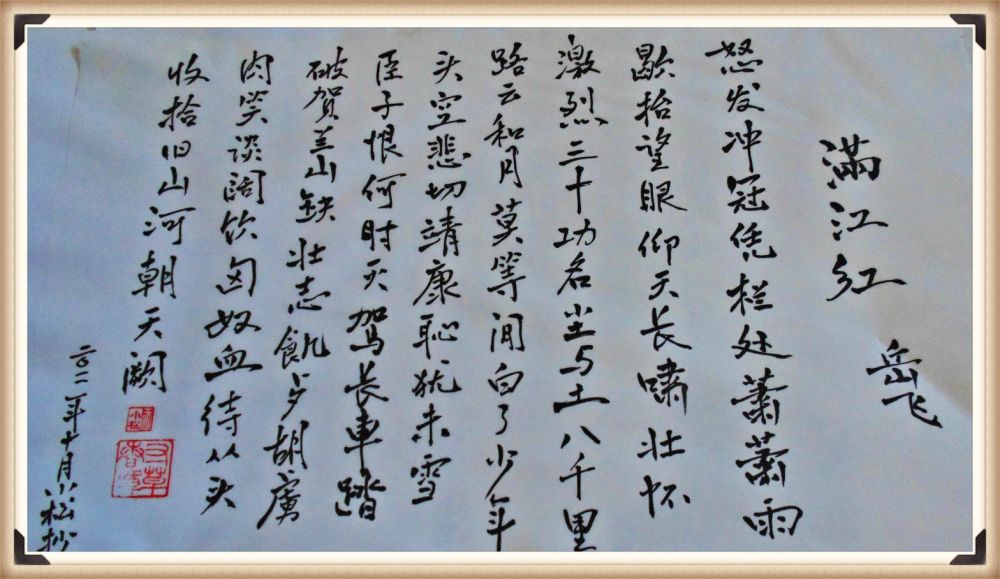 滿江红
岳飞
怒发冲冠凭栏处蕭蕭雨
歇抬望眼仰天长嘯壮怀
激烈三十功名尘与土八千里
路云和月莫等闲白了少年
头空悲切靖康耻犹未雪
臣子恨何时灭驾长車踏
破贺兰山缺壮志飢歺胡虏
肉笑谈阔饮匈奴血待从头
收拾旧山河朝天阙
二〇一一年十月小松抄